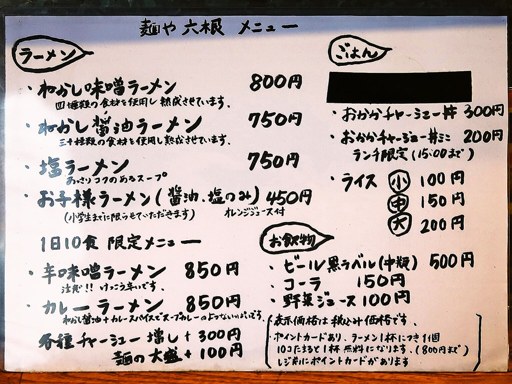 麺や 六根 メニュー
ラーメン
・ねかし味噌ラーメン 800円
四種類の食材を使用し熟成させています。
・ねかし醤油ラーメン 750円
三十種類の食材を使用し熟成させています。
・塩ラーメン 750円
あっさりコクのあるスープ
・お子様ラーメン(醤油、塩のみ) 450円
(小学生までに限らせていただきます) オレンジジュース付
1日10食 限定メニュー
・辛味噌ラーメン 850円
注意!! けっこう辛いです。
・カレーラーメン 850円
ねかし醤油+カレースパイスでスープカレーのようなつけ
各種チャーシュー増し +300円
麺の大盛 +100円
ごはん
・おかかチャーシュー丼 300円
・おかかチャーシュー丼ミニ 200円
ランチ限定(15:00まで)
・ライス 小 100円
中 150円
大 200円
お飲物
・ビール黒ラベル(中瓶) 500円
・コーラ 150円
・野菜ジュース 100円
・表示価格は税込み価格です。
ポイントカードあり、ラーメン1杯につき1個
10コたまると1杯無料になります。(800円まで)
レジ横にポイントカードがあります